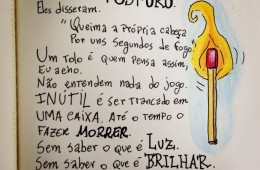 Eles disseram.
"Queima a própria cabeça
Por uns segundos de fogo"
Um tolo é quem pensa assim,
Eu acho.
Não entendem nada do jogo.
INÚTIL é ser trancado em
uma caixa. Até o tempo o
fazer MORRER.
Sem saber o que é LUZ.
Sem saber o que é BRILHAR.